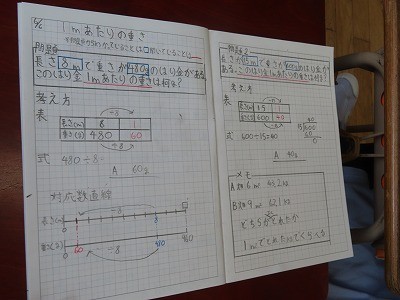 5/6
1mあたりの重さ
問題
長さ8mで重さが480gのはり金がある。
このはり金1mあたりの重さは何g?
考え方
÷8
表
長さ(m) 8 1
重さ(g) 480 60
÷8
式 480÷8=
A 60g
対応数直線
÷8
長さ(m)
重さ(g)
60 480
÷8
問題2
長さが15mで重さが600gのはり金が
ある。このはり金1mあたりの重さは何g?
考え方
表
長さ(m) 15 1
重さ(g) 600 40
式 600÷15=40
40
15)600
60
0
A 40g
メモ
A
B
どちらがとれたか
1m²でとれたkgでくらべる